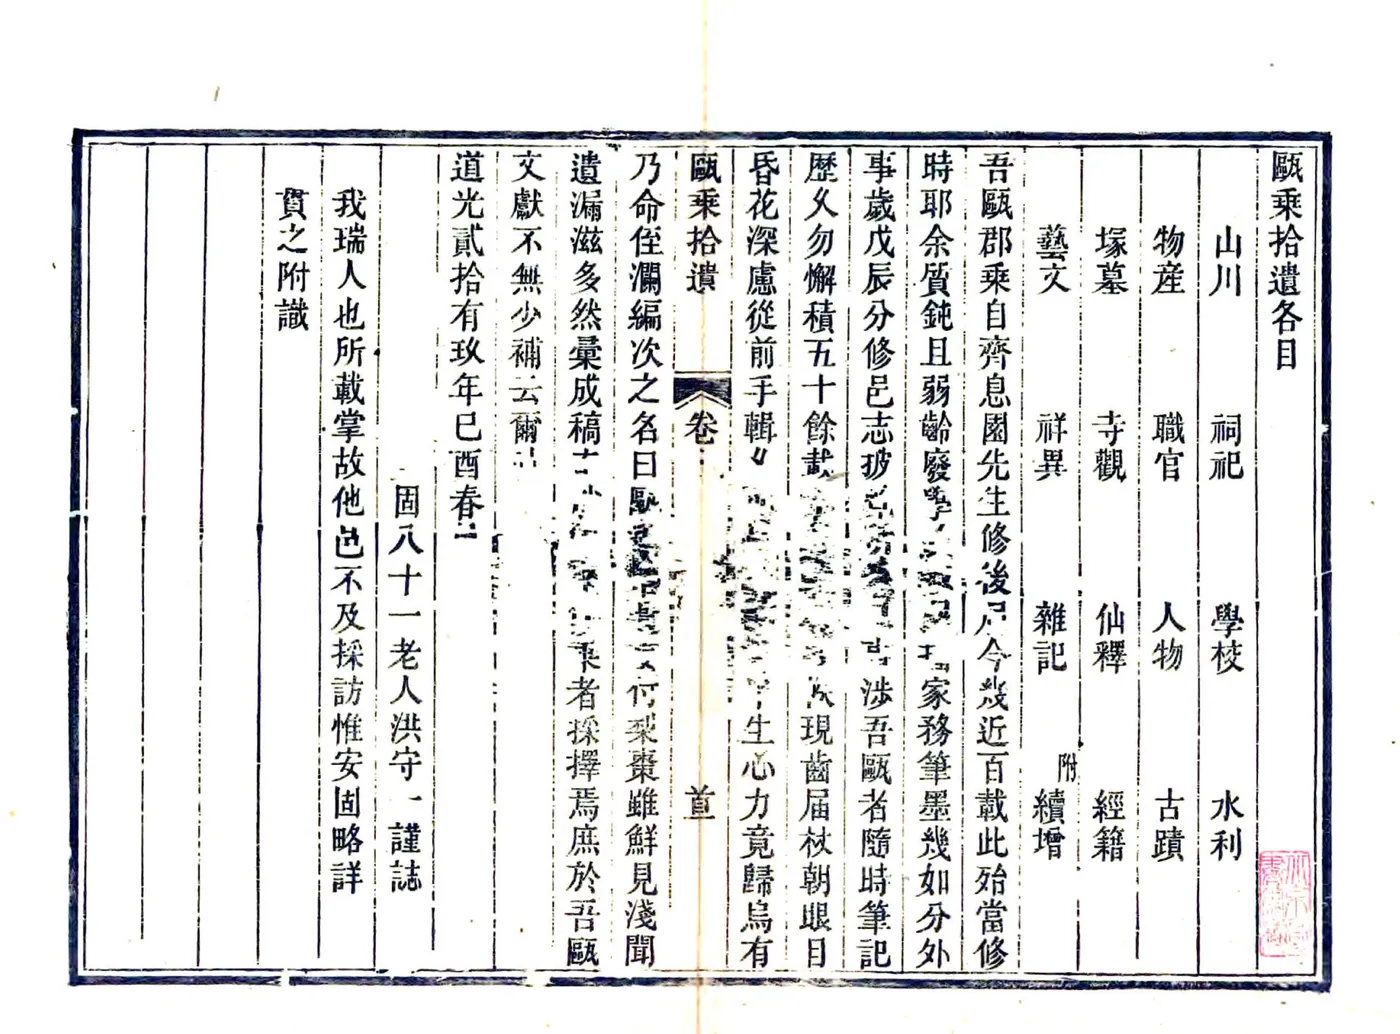 甌乘拾遺各目
山川 祠祀 學校 水利
物産 職官 人物 古蹟
塚墓 寺觀 仙釋 經籍
藝文 祥異 雜記 附續增
吾甌郡乘自齊息園先生修後 今幾近百載此殆當修
時耶余質鈍且弱齡廢學 家務筆墨幾如分外
事歲戊辰分修邑志披 涉吾甌者隨時筆記
歷久勿懈積五十餘載 現齒届杖朝眼目
昏花深慮從前手輯 生心力竟歸烏有
甌乘拾遺 卷 首
乃命侄瀾編次之名曰甌 何梨棗雖鮮見淺聞
遺漏滋多然彙成稿 乘者採擇焉庶於吾甌
文獻不無少補云爾
道光貳拾有玖年巳酉春
固八十一老人洪守一謹誌
我瑞人也所載掌故他邑不及採訪惟安固略詳
貫之附識